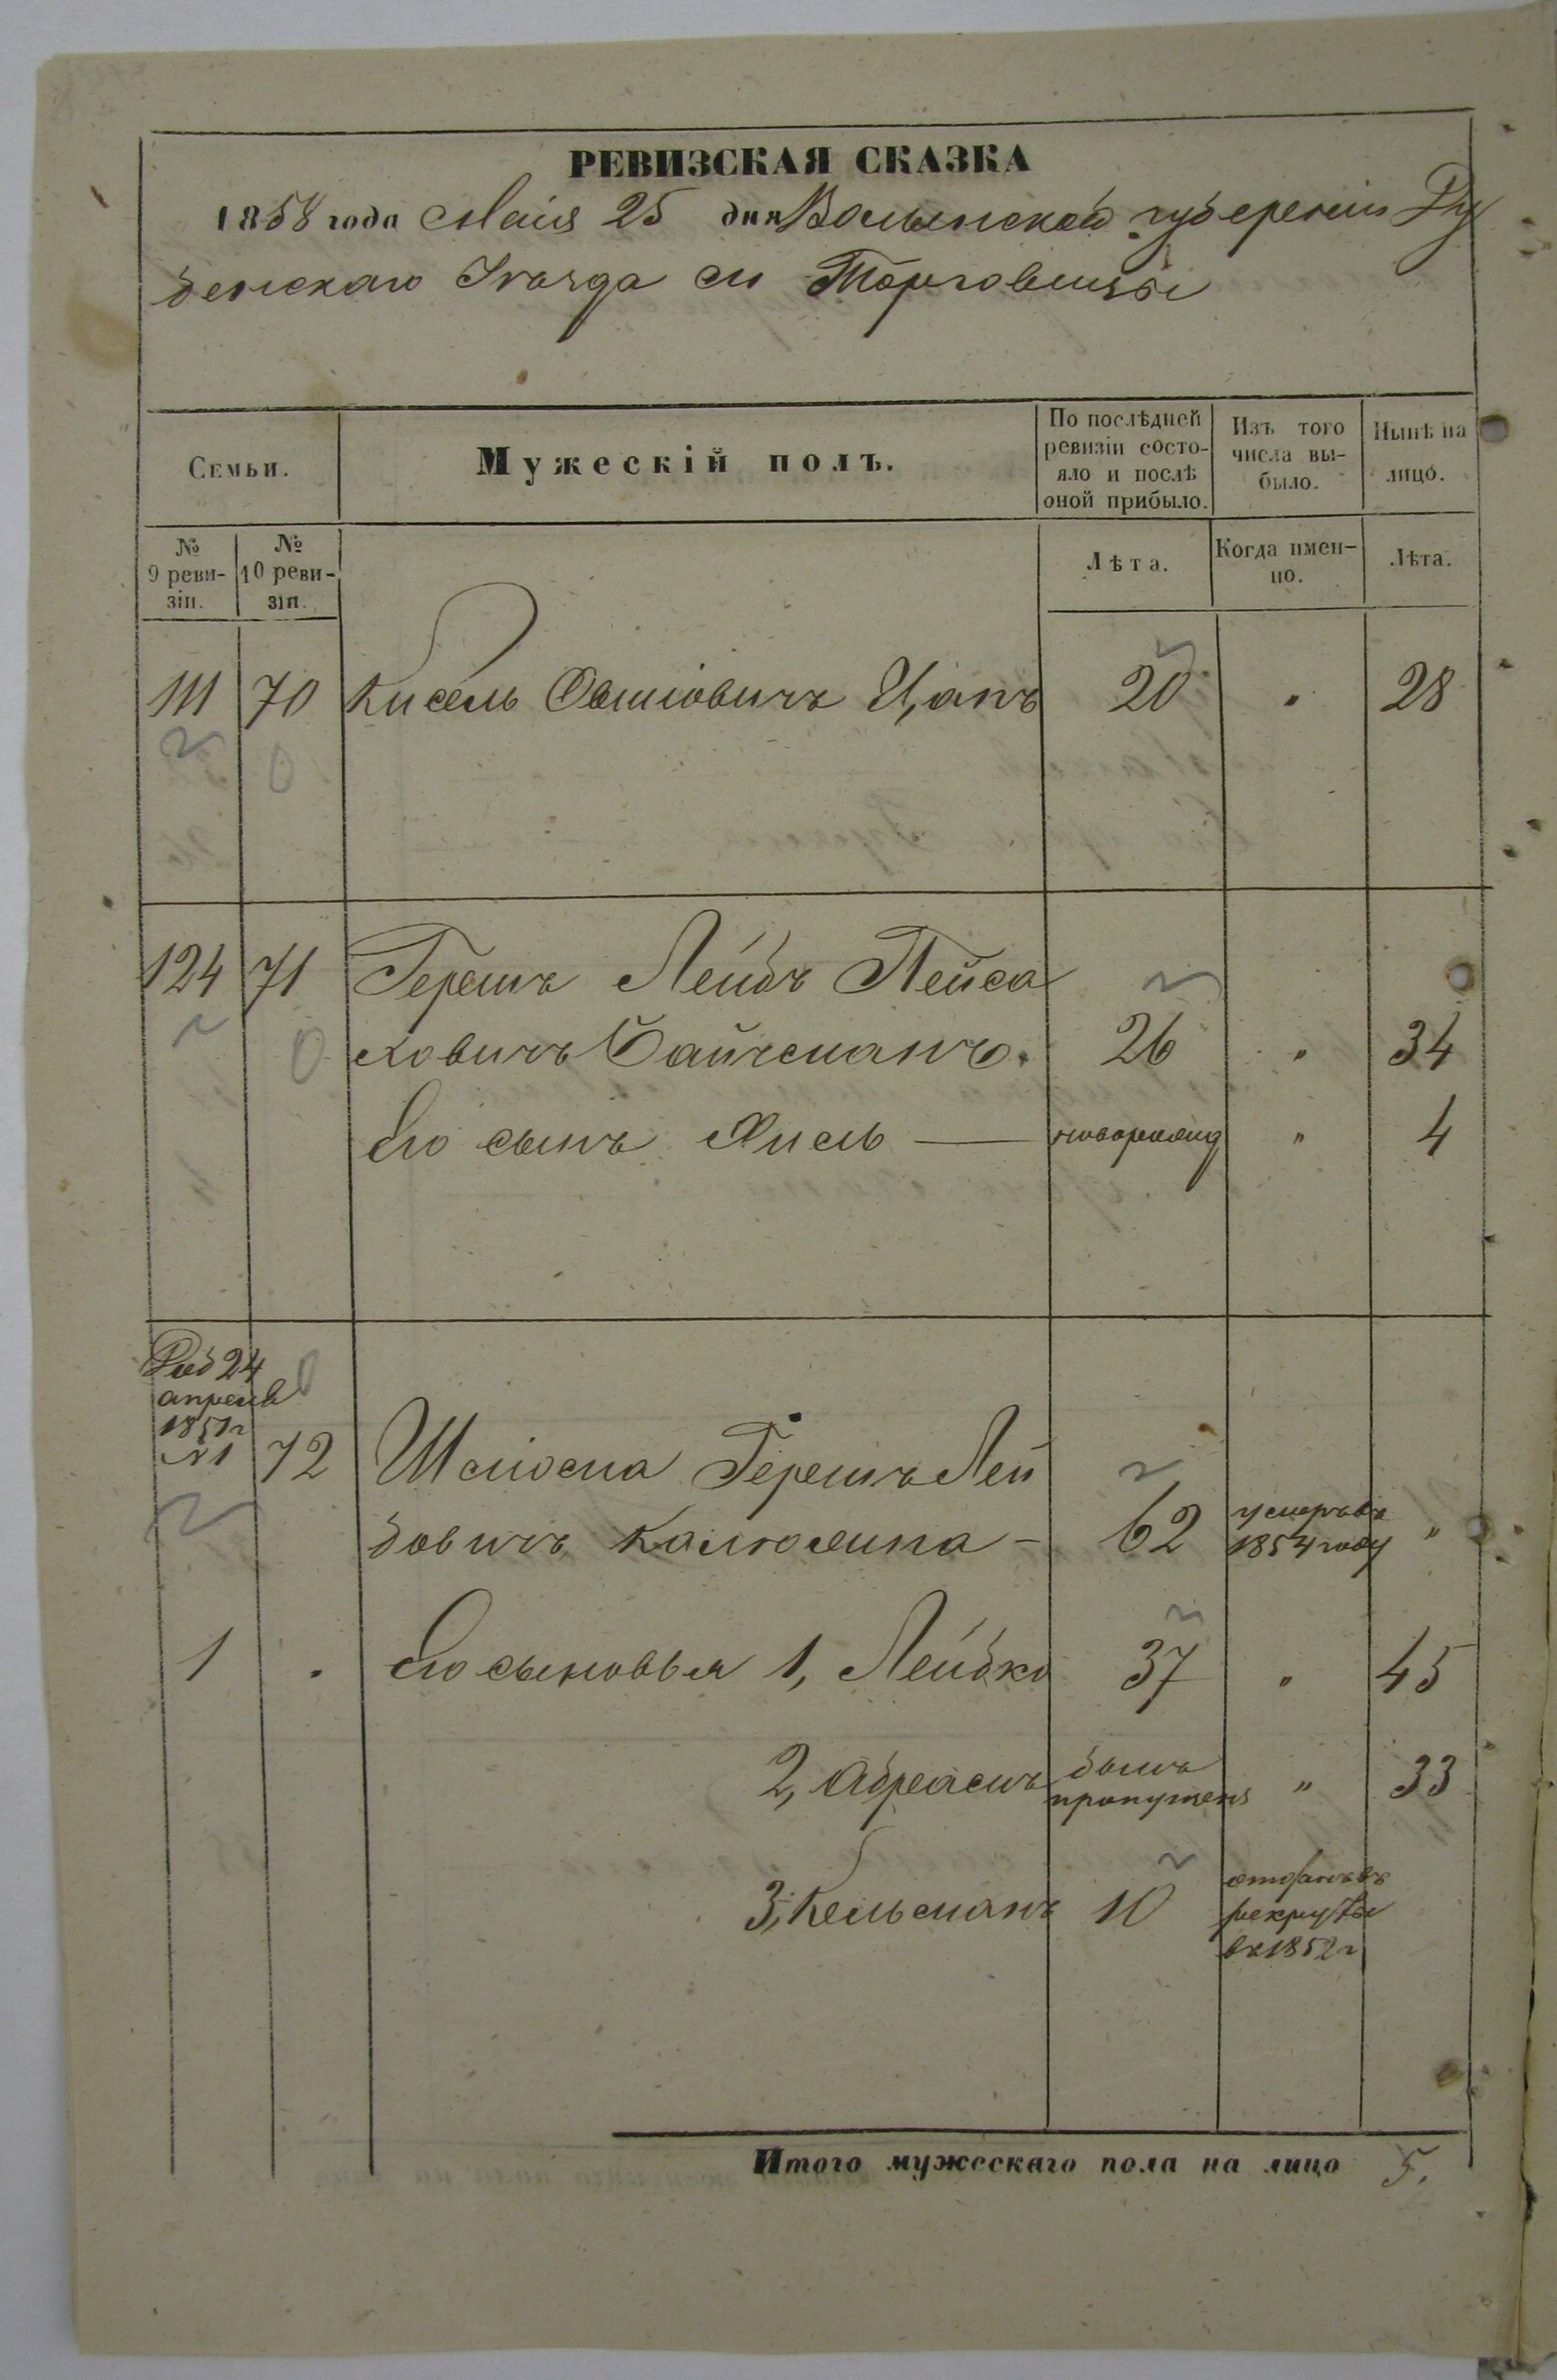 РЕВИЗСКАЯ СКАЗКА
1858 года Маія 25 дня Волынской губерніи Ду
бенскаго Уѣзда м Торговицы
Семьи.
Мужескій полъ.
По послѣдней
ревизіи состо-
яло и послѣ
оной прибыло.
Изъ того
числа вы-
было.
Нынѣ на
лицо.
№
9 реви-
зіи.
№
10 реви-
зіи.
Лѣта.
Когда имен-
но.
Лѣта.
111 70 Кисель Овшіовичъ Цапъ 20 " 28
124 71 Гершъ Лейбъ Пейса
ховичъ Вайцманъ. 26 " 34
Его сынъ Хисль — новорожд " 4
Роб 24
апреля
1851г
№1 72 Шліома Гершъ Лей
бовичъ - 62 умеръ въ 1854 году "
1 . Его сыновья 1, Лейбко 37 " 45
2, Абрамъ былъ пропущенъ " 33
3, Кельманъ 10 отданъ въ рекруты въ 1852г
Итого мужескаго пола на лицо 5.